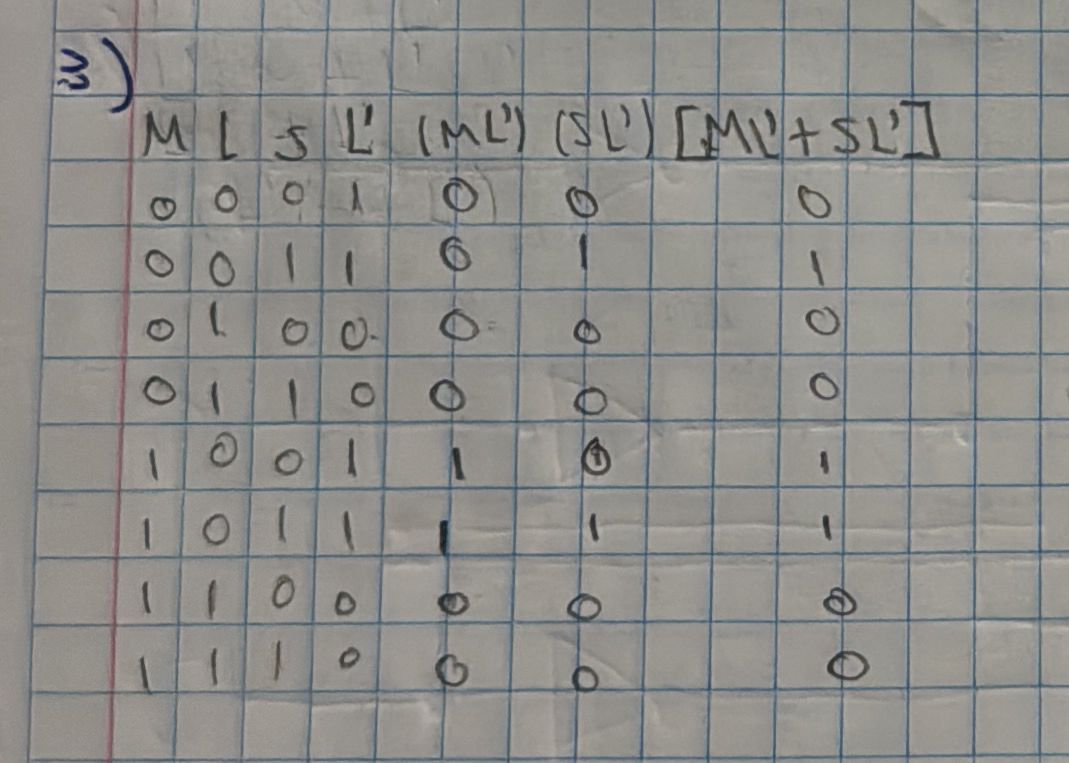 3)
M L S L' (ML') (SL') [ML' + SL']
0 0 0 1 0 0 0
0 0 1 1 0 1 1
0 1 0 0 0 0 0
0 1 1 0 0 0 0
1 0 0 1 1 0 1
1 0 1 1 1 1 1
1 1 0 0 0 0 0
1 1 1 0 0 0 0